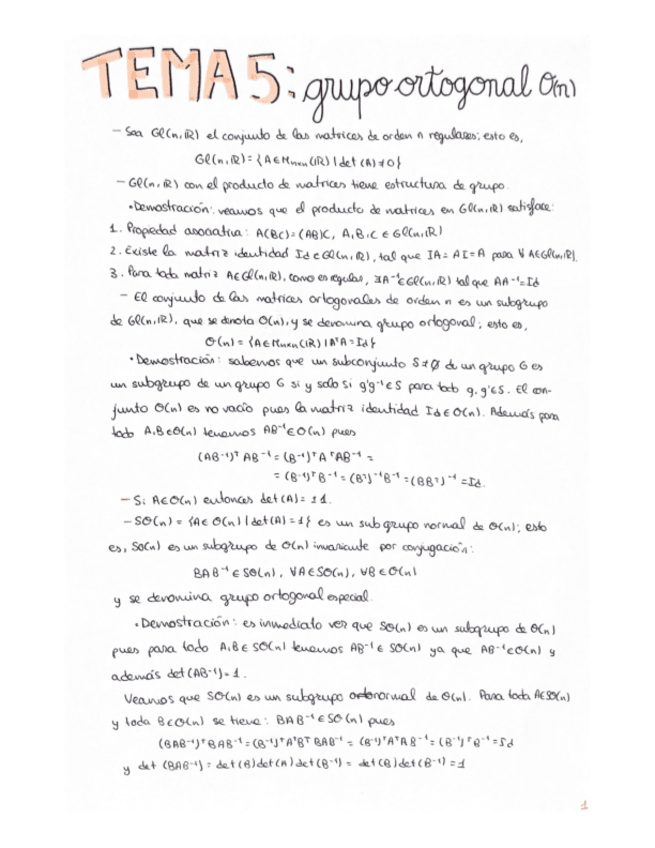 TEMA 5: grupo ortogonal O(n)
- Sea Gl(n,ℝ) el conjunto de las matrices de orden n regulares; esto es,
Gl(n,ℝ) = {A∈Mₙₓₙ(ℝ) | det(A)≠0}
- Gl(n,ℝ) con el producto de matrices tiene estructura de grupo.
•Demostración: veamos que el producto de matrices en Gl(n,ℝ) satisface:
1. Propiedad asociativa: A(BC)=(AB)C, A,B,C ∈ Gl(n,ℝ)
2. Existe la matriz identidad Id∈Gl(n,ℝ), tal que IA = AI = A para ∀ A∈Gl(n,ℝ).
3. Para toda matriz A∈Gl(n,ℝ), como es regular, ∃A⁻¹∈Gl(n,ℝ) tal que AA⁻¹=Id
- El conjunto de las matrices ortogonales de orden n es un subgrupo
de Gl(n,ℝ), que se denota O(n), y se denomina grupo ortogonal; esto es,
O(n) = {A∈Mₙₓₙ(ℝ) | AᵀA = Id}
•Demostración: sabemos que un subconjunto S≠∅ de un grupo G es
un subgrupo de un grupo G si y solo si g'g⁻¹∈S para todo g, g'∈S. El con-
junto O(n) es no vacío pues la matriz identidad Id∈O(n). Además para
todo A,B∈O(n) tenemos AB⁻¹∈O(n) pues
(AB⁻¹)ᵀ AB⁻¹ = (B⁻¹)ᵀ Aᵀ AB⁻¹ =
= (B⁻¹)ᵀ B⁻¹ = (Bᵀ)⁻¹B⁻¹ = (BBᵀ)⁻¹ = Id.
- Si A∈O(n) entonces det(A)= ±1.
- SO(n) = {A∈ O(n) | det(A)=1} es un subgrupo normal de O(n); esto
es, SO(n) es un subgrupo de O(n) invariante por conjugación:
BAB⁻¹ ∈ SO(n), ∀A∈SO(n), ∀B∈O(n)
y se denomina grupo ortogonal especial.
•Demostración: es inmediato ver que SO(n) es un subgrupo de O(n)
pues para todo A,B∈ SO(n) tenemos AB⁻¹∈ SO(n) ya que AB⁻¹∈O(n) y
además det(AB⁻¹)=1.
Veamos que SO(n) es un subgrupo normal de O(n). Para toda A∈SO(n)
y toda B∈O(n) se tiene: BAB⁻¹∈SO(n) pues
(BAB⁻¹)ᵀ BAB⁻¹ = (B⁻¹)ᵀAᵀBᵀ BAB⁻¹ = (B⁻¹)ᵀAᵀA B⁻¹ = (B⁻¹)ᵀB⁻¹ = Id
y det (BAB⁻¹) = det(B)det(A)det(B⁻¹) = det(B)det(B⁻¹) = 1
1